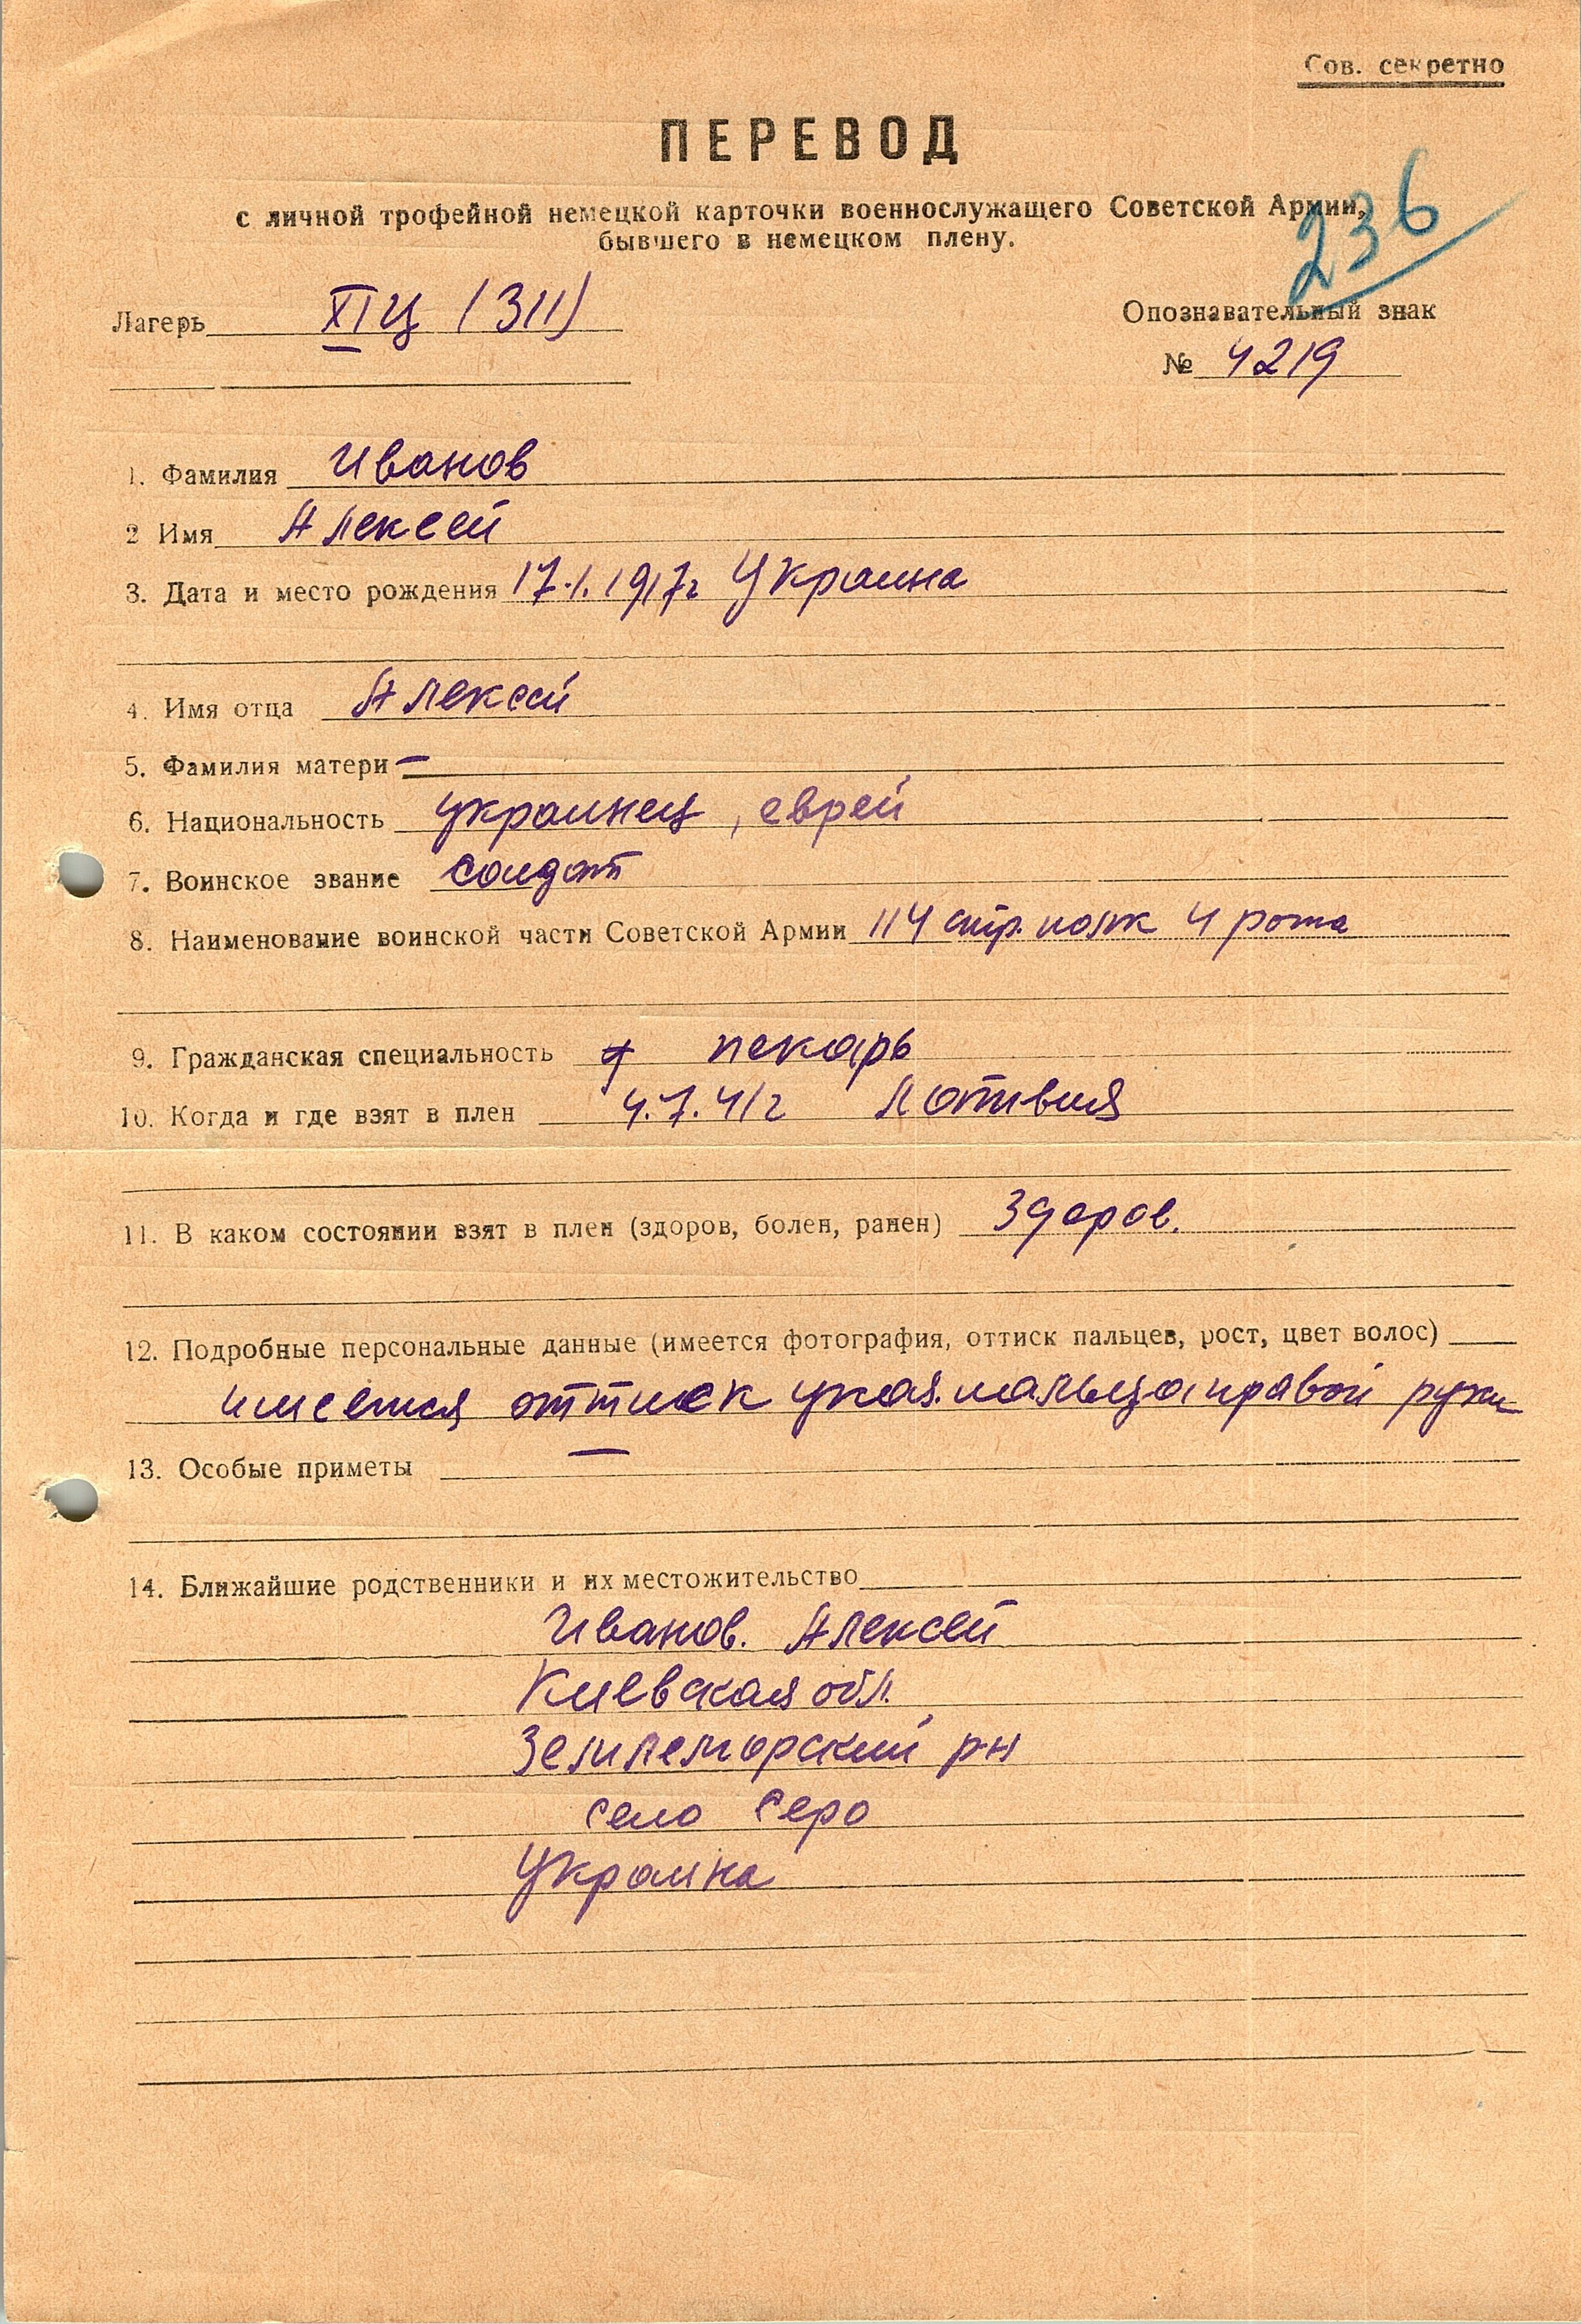 Сов. секретно
ПЕРЕВОД
с личной трофейной немецкой карточки военнослужащего Советской Армии,
бывшего в немецком плену.
236
Лагерь XIЦ (311)
Опознавательный знак
№ 4219
1. Фамилия Иванов
2 Имя Алексей
3. Дата и место рождения 17.1.1917г Украина
4. Имя отца Алексей
5. Фамилия матери —
6. Национальность украинец, еврей
7. Воинское звание солдат
8. Наименование воинской части Советской Армии 114 стр. полк 4 рота
9. Гражданская специальность пекарь
10. Когда и где взят в плен 4.7.41г Латвия
11. В каком состоянии взят в плен (здоров, болен, ранен) здоров.
12. Подробные персональные данные (имеется фотография, оттиск пальцев, рост, цвет волос)
имеется оттиск указ. пальца правой руки
13. Особые приметы —
14. Ближайшие родственники и их местожительство
Иванов. Алексей
Киевская обл.
рн
село Серо
Украина